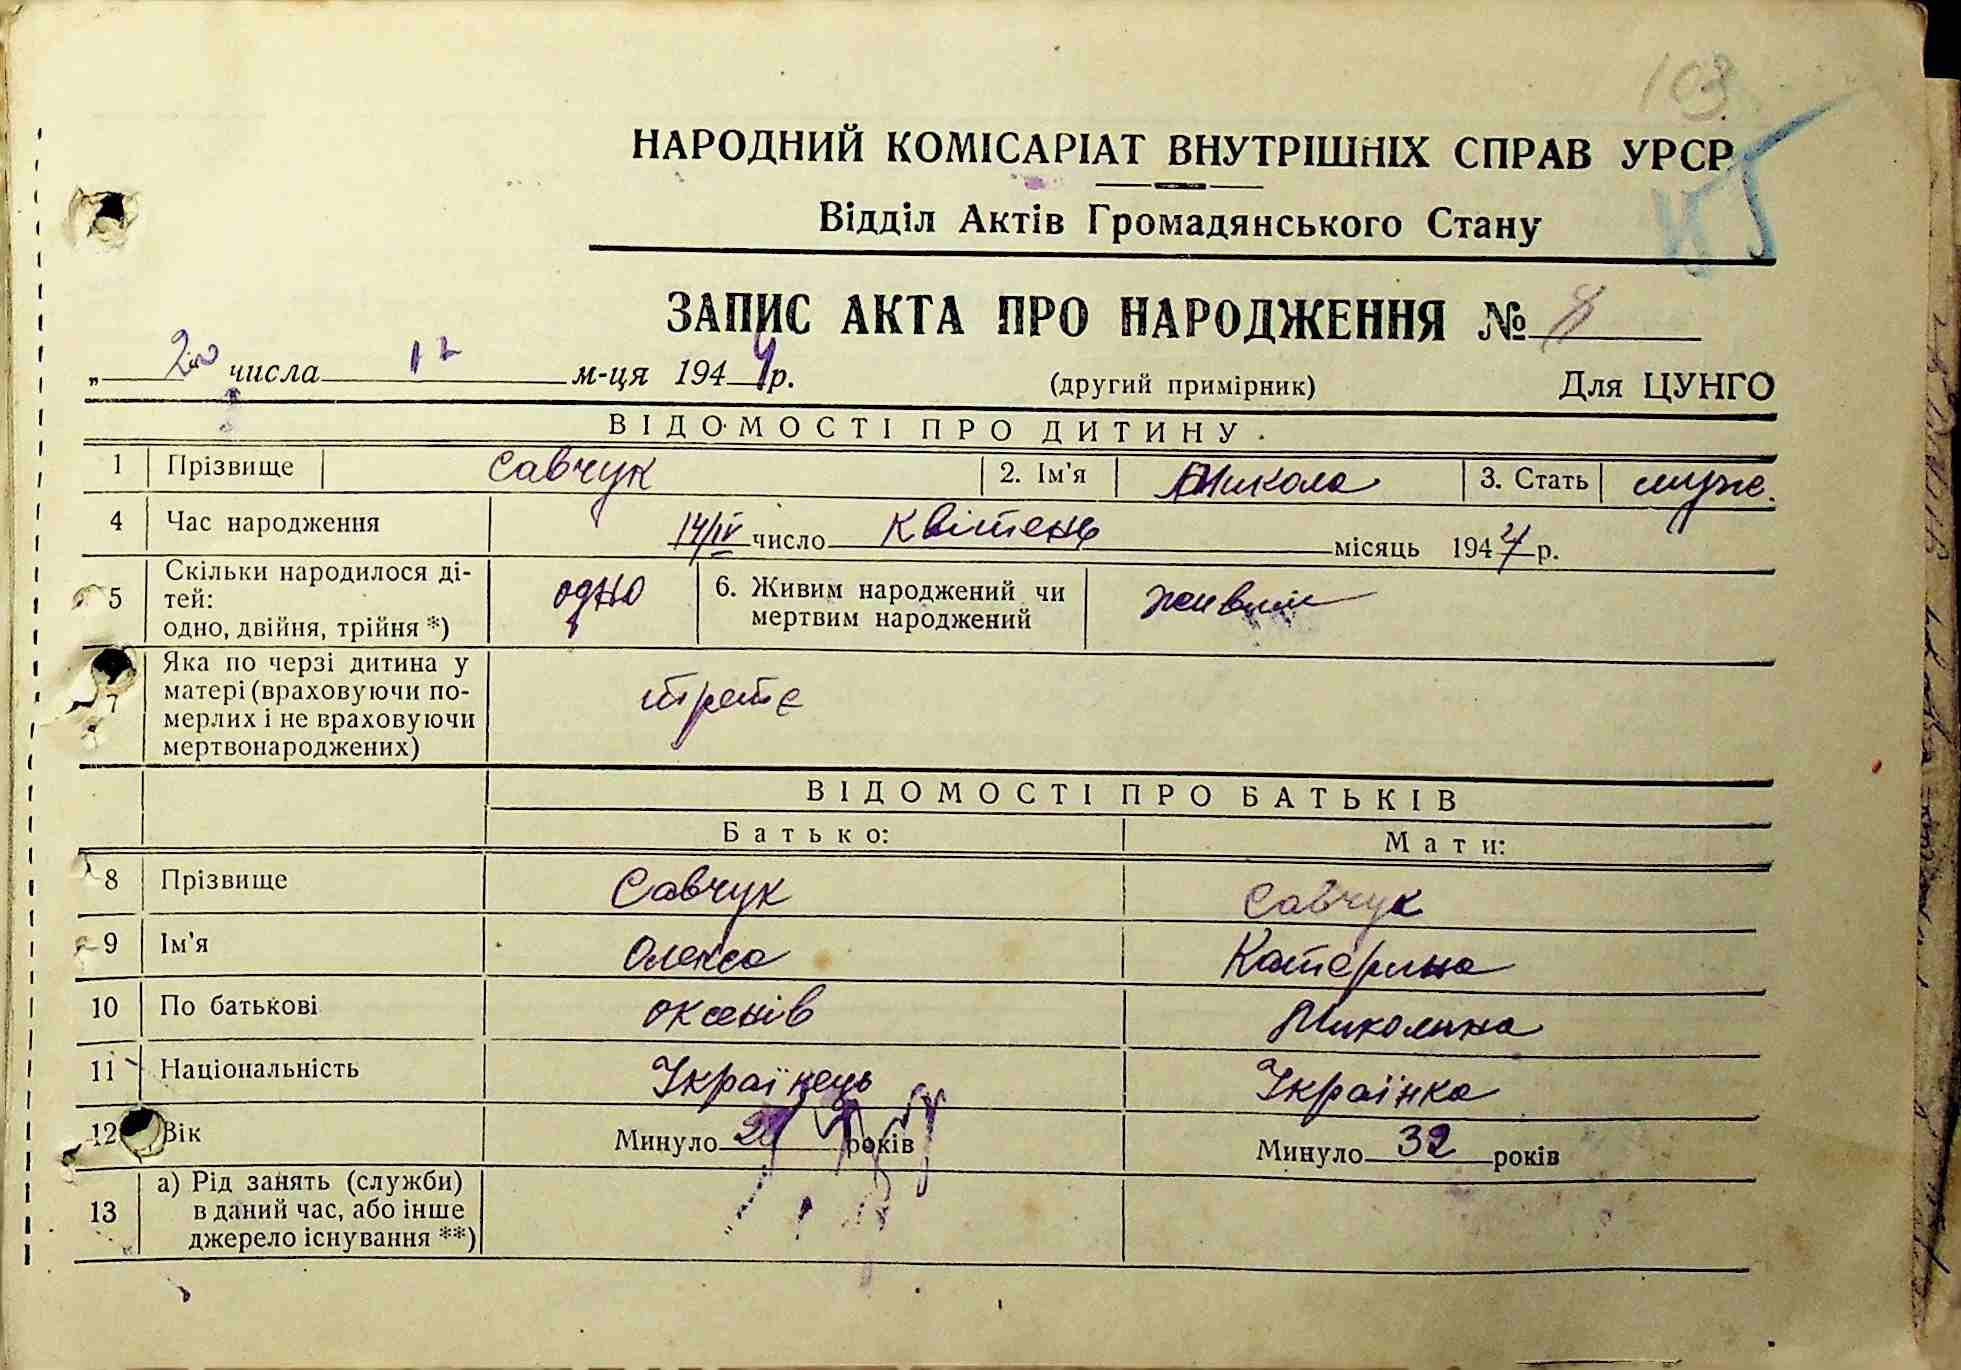 103
НАРОДНИЙ КОМІСАРІАТ ВНУТРІШНІХ СПРАВ УРСР
Відділ Актів Громадянського Стану
ЗАПИС АКТА ПРО НАРОДЖЕННЯ № 8
„ 20 числа 12 м-ця 1944 р. (другий примірник) Для ЦУНГО
ВІДОМОСТІ ПРО ДИТИНУ
1 Прізвище Савчук 2. Ім'я Микола 3. Стать муж.
4 Час народження 14/IV число Квітень місяць 1944 р.
5 Скільки народилося ді-
тей:
одно, двійня, трійня *) одно 6. Живим народжений чи
мертвим народжений живим
7 Яка по черзі дитина у
матері (враховуючи по-
мерлих і не враховуючи
мертвонароджених) третє
ВІДОМОСТІ ПРО БАТЬКІВ
Батько: Мати:
8 Прізвище Савчук Савчук
9 Ім'я Олекса Катерина
10 По батькові Оксенів Миколина
11 Національність Українець Українка
12 Вік Минуло років Минуло 32 років
13 а) Рід занять (служби)
в даний час, або інше
джерело існування **)